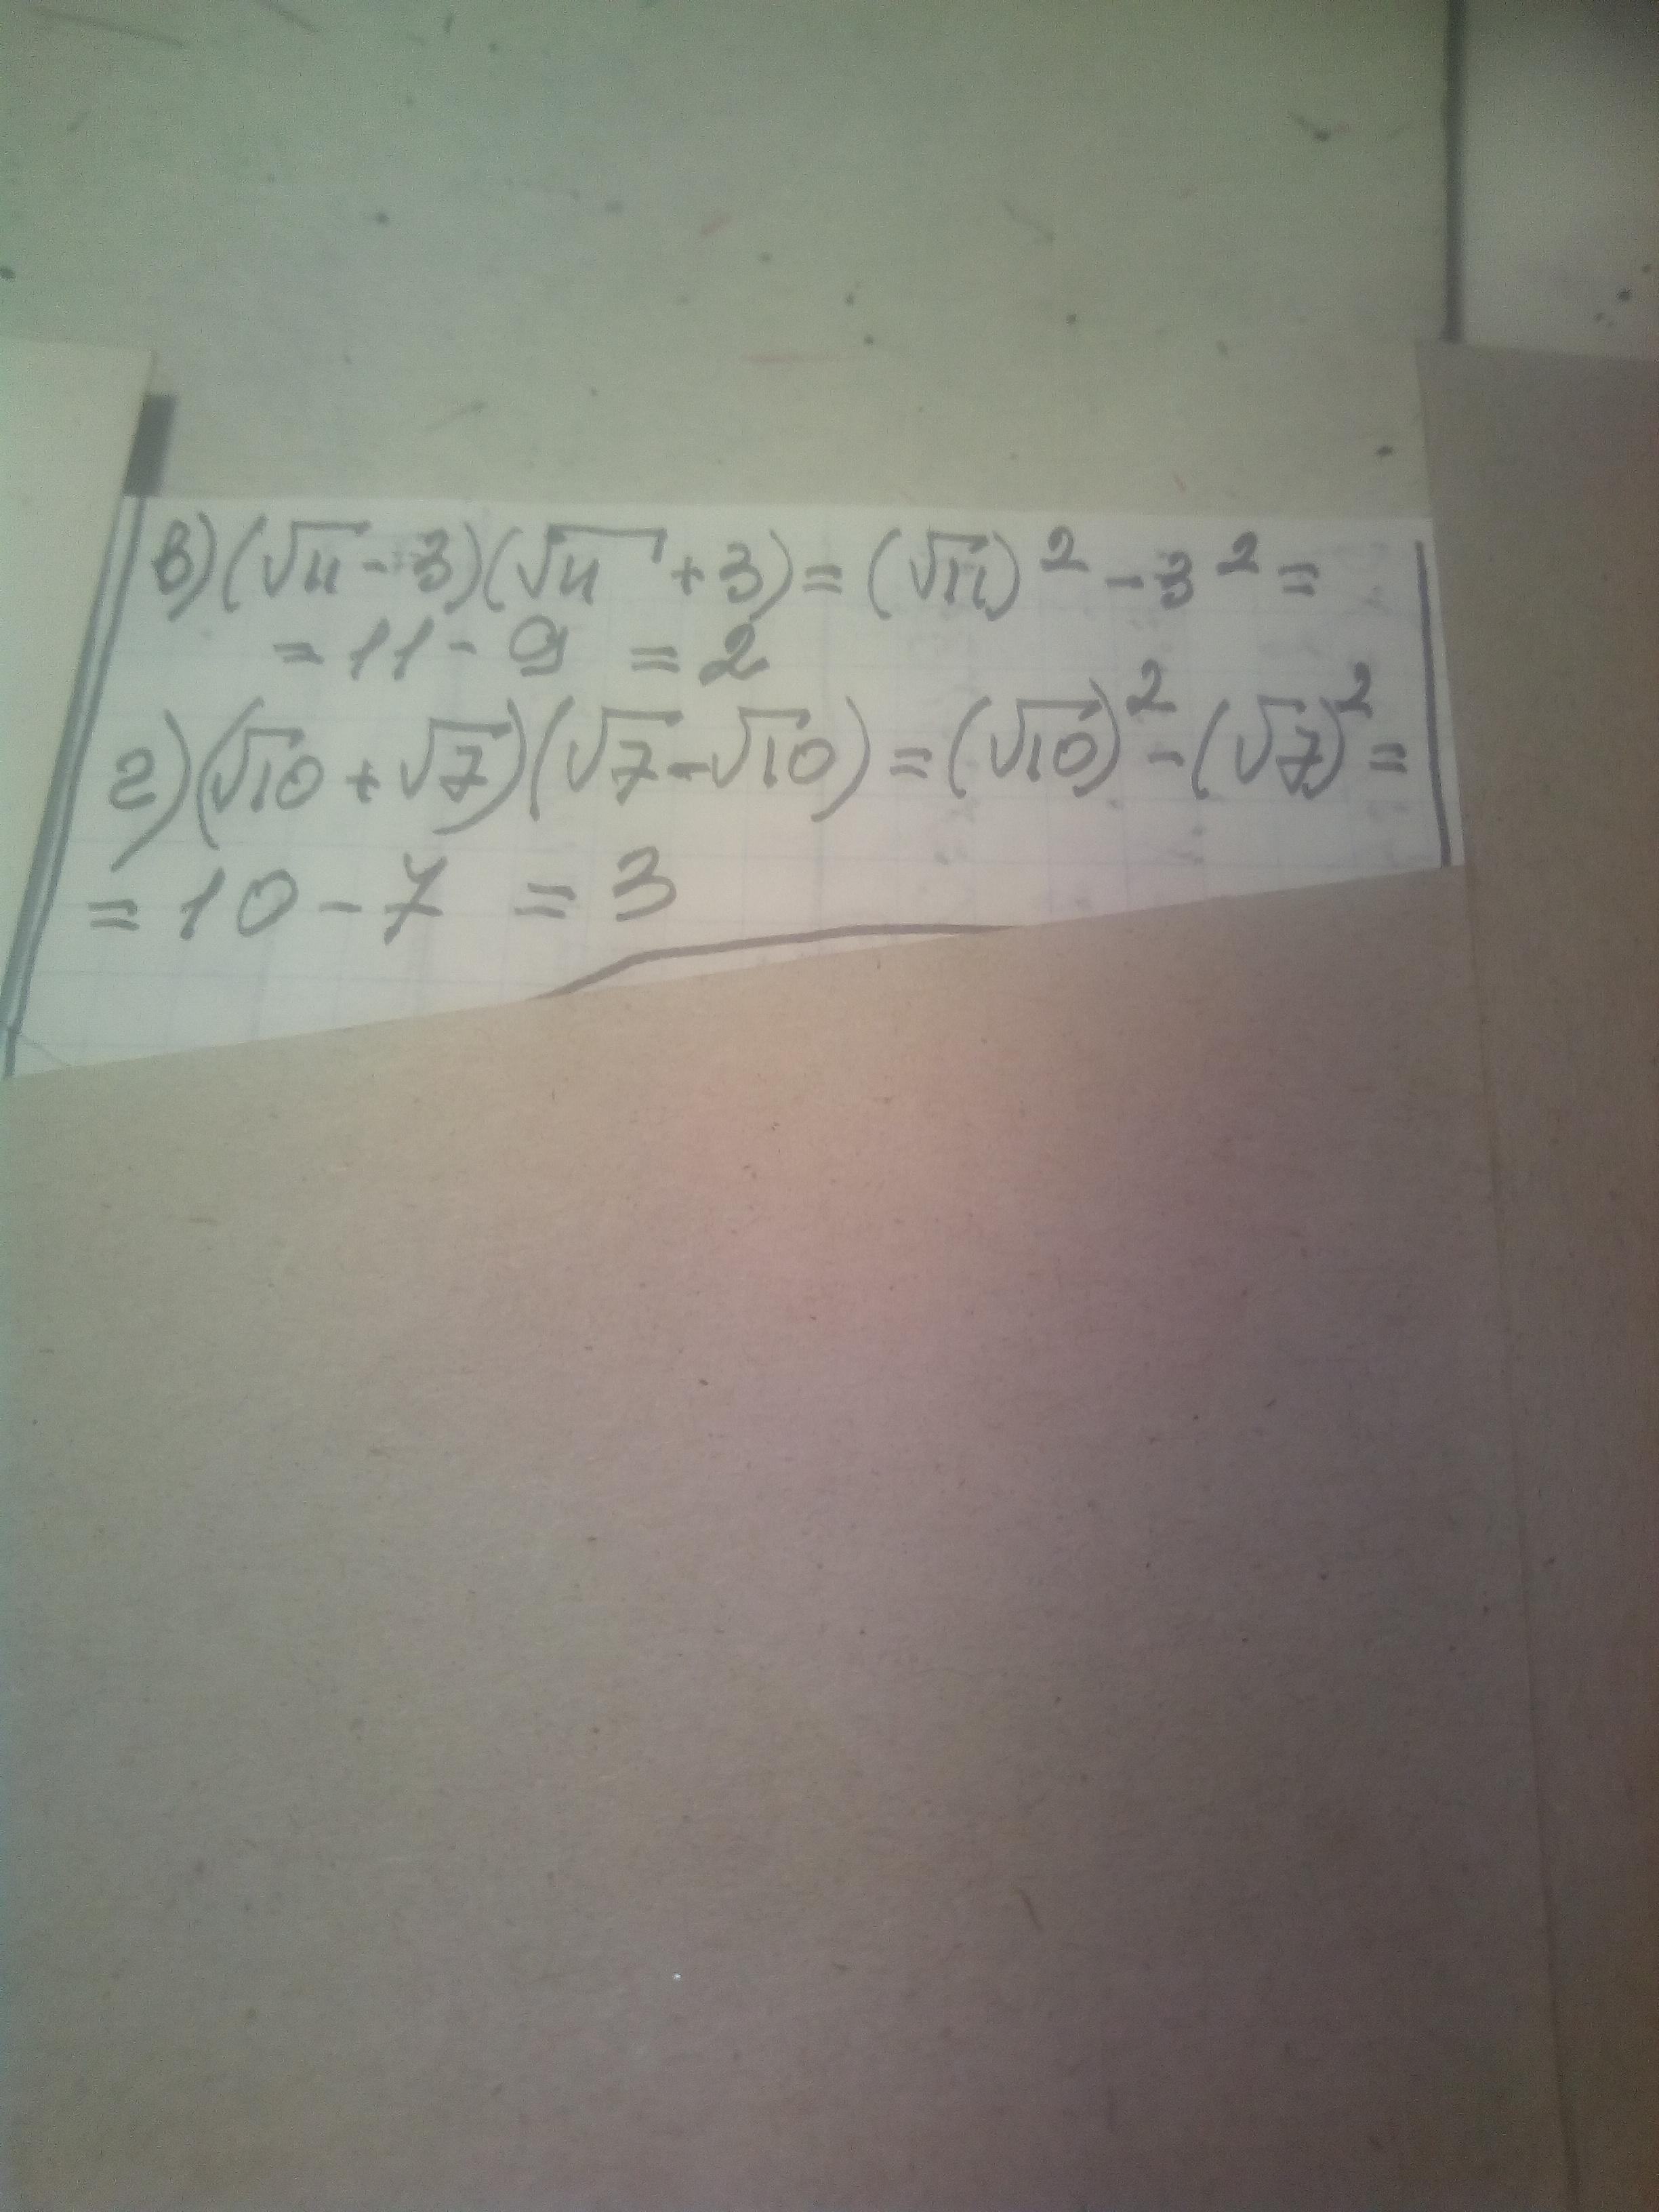 в) (√11 - 3)(√11 + 3) = (√11)² - 3² =
= 11 - 9 = 2
г) (√10 + √7)(√7 - √10) = (√10)² - (√7)² =
= 10 - 7 = 3